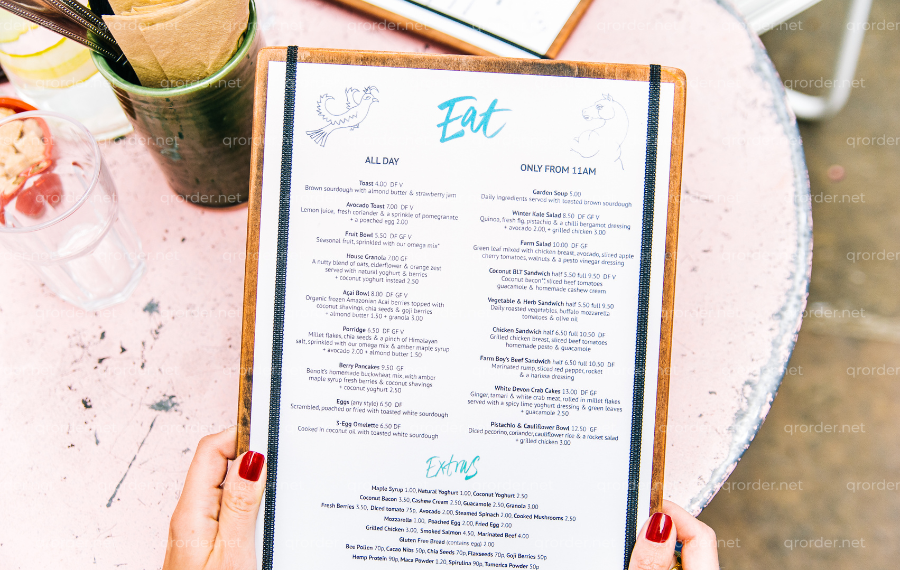 Eat
ALL DAY
Toast 4.00 DF V
Brown sourdough with almond butter & strawberry jam
Avocado Toast 7.00 DF V
Lemon juice, fresh coriander & a sprinkle of pomegranate
+ a poached egg 2.00
Fruit Bowl 5.50 DF GF V
Seasonal fruit, sprinkled with our omega mix*
House Granola 7.00 GF
A nutty blend of oats, elderflower & orange zest
served with natural yoghurt & berries
+ coconut yoghurt instead 2.50
Açai Bowl 8.00 DF GF V
Organic frozen Amazonian Açai berries topped with
coconut shavings, chia seeds & goji berries
+ almond butter 1.50 + granola 3.00
Porridge 6.50 DF GF V
Millet flakes, chia seeds & a pinch of Himalayan
salt, sprinkled with our omega mix & amber maple syrup
+ avocado 2.00 + almond butter 1.50
Berry Pancakes 9.50 GF
Benoit's homemade buckwheat mix with amber
maple syrup fresh berries & coconut shavings
+ coconut yoghurt 2.50
Eggs (any style) 6.50 DF
Scrambled, poached or fried with toasted white sourdough
3-Egg Omelette 6.50 DF
Cooked in coconut oil with toasted white sourdough
ONLY FROM 11AM
Garden Soup 5.00
Daily ingredients served with toasted brown sourdough
Winter Kale Salad 8.50 DF GF V
Quinoa, fresh fig, pistachio & a chilli bergamot dressing
+ avocado 2.00, + grilled chicken 3.00
Farm Salad 10.00 DF GF
Green leaf mixed with chicken breast, avocado, sliced apple
cherry tomatoes, walnuts & a pesto vinegar dressing
Coconut BLT Sandwich half 5.50 full 9.50 DF V
Coconut bacon*, sliced beef tomatoes
guacamole & homemade cashew cream
Vegetable & Herb Sandwich half 5.50 full 9.50
Daily roasted vegetables, buffalo mozzarella
tomatoes & olive oil
Chicken Sandwich half 6.50 full 10.50 DF
Grilled chicken breast, sliced beef tomatoes
homemade pesto & guacamole
Farm Boy's Beef Sandwich half 6.50 full 10.50 DF
Marinated rump, sliced red pepper, rocket
& a harissa dressing
White Devon Crab Cakes 13.00 DF GF
Ginger, tamari & white crab meat, rolled in millet flakes
served with a spicy lime yoghurt dressing & green leaves
+ guacamole 2.50
Pistachio & Cauliflower Bowl 12.50 GF
Diced pecorino, coriander, cauliflower rice & a rocket salad
+ grilled chicken 3.00
Extras
Maple Syrup 1.00, Natural Yoghurt 1.00, Coconut Yoghurt 2.50
Coconut Bacon 3.50, Cashew Cream 2.50, Guacamole 2.50, Granola 3.00
Fresh Berries 3.50, Diced tomato 75p, Avocado 2.00, Steamed Spinach 2.00, Cooked Mushrooms 2.50
Mozzarella 1.00, Poached Egg 2.00, Fried Egg 2.00
Grilled Chicken 3.00, Smoked Salmon 4.50, Marinated Beef 4.00
Gluten Free Bread (contains egg) 2.00
Bee Pollen 70p, Cacao Nibs 50p, Chia Seeds 70p, Flaxseeds 70p, Goji Berries 50p
Hemp Protein 90p, Maca Powder 1.20, Spirulina 90p, Tumerica Powder 50p
qrorder.net